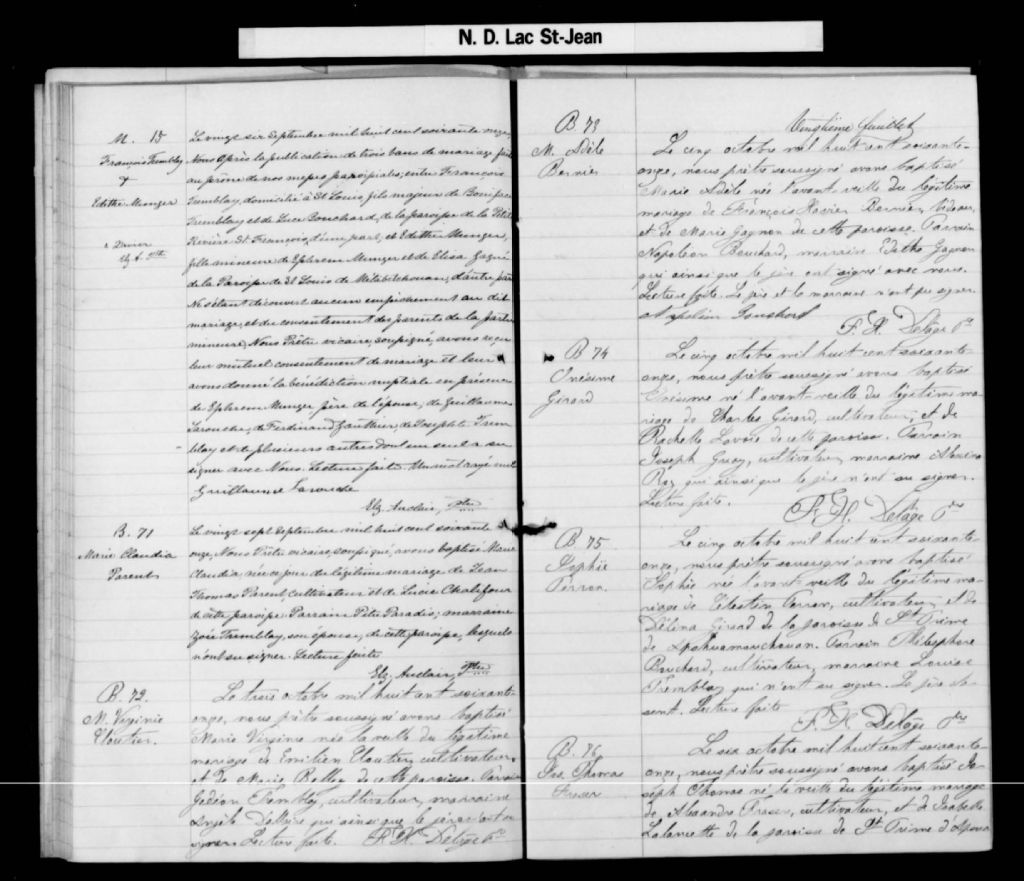 N. D. Lac St-Jean
M. 15
François Tremblay
&
Edithe Munger
Le vingt six Septembre mil huit cent soixante onze,
Nous après la publication de trois bans de mariage fait
au prône de nos messes paroissiales, entre François
Tremblay, domicilié à St Louis, fils majeur de Boniface
Tremblay et de Luce Bouchard, de la paroisse de la Petite
Rivière St. François, d'une part, et Edithe Munger,
fille mineure de Ephrem Munger et de Elisa Gagné
de la Paroisse de St Louis de Métabetchouan, d'autre part
Ne s'étant découvert aucun empêchement au dit
mariage, et du consentement des parents de la partie
mineure, Nous Prêtre vicaire, soussigné, avons reçu
leur mutuel consentement de mariage et leur
avons donné la bénédiction nuptiale en présence
de Ephrem Munger père de l'épouse, de Guillaume
Larouche, de Ferdinand Gauthier, de Joseph Trem
blay et de plusieurs autres dont un seul a su
signer avec Nous. Lecture faite. Un mot rayé nul
Guillaume Larouche
Elz. Auclair, Ptre
B. 71
Marie Claudia
Parent
Le vingt sept Septembre mil huit cent soixante
onze, Nous Prêtre vicaire, soussigné, avons baptisé Marie
Claudia, née ce jour du légitime mariage de Jean
Thomas Parent, cultivateur et de Lucie Chalifour
de cette paroisse. Parrain Pitre Paradis; marraine
Zoé Tremblay, son épouse, de cette paroisse, lesquels
n'ont su signer. Lecture faite
Elz. Auclair, Ptre
B. 72.
M. Virginie
Cloutier.
Le trois octobre mil huit cent soixante-
onze, nous prêtre soussigné avons baptisé
Marie Virginie née la veille du légitime
mariage de Emilien Cloutier, cultivateur,
et de Marie de cette paroisse. Parrain
Gédéon Tremblay, cultivateur, marraine
qui ainsi que le père n'ont su
signer. Lecture faite. F. X. Delâge Ptre
Vingtième feuillet
B. 73
M. Adèle
Bernier
Le cinq octobre mil huit cent soixante-
onze, nous prêtre soussigné avons baptisé
Marie Adèle née l'avant veille du légitime
mariage de François Xavier Bernier, bedeau,
et de Marie Gagnon de cette paroisse. Parrain
Napoléon Bouchard, marraine Edithe Gagnon
qui ainsi que le père ont signé avec nous.
Lecture faite. Le père et la marraine n'ont pu signer.
Napoléon Bouchard
F. X. Delâge Ptre
B 74
Onésime
Girard
Le cinq octobre mil huit cent soixante-
onze, nous prêtre soussigné avons baptisé
Onésime né l'avant-veille du légitime ma-
riage de Charles Girard, cultivateur, et de
Rachelle Lavoie de cette paroisse. Parrain
Joseph Guay, cultivateur, marraine
Roy qui ainsi que le père n'ont su signer.
Lecture faite.
F. X. Delâge Ptre
B. 75
Sophie
Perron.
Le cinq octobre mil huit cent soixante-
onze, nous prêtre soussigné avons baptisé
Sophie née l'avant-veille du légitime ma-
riage de Célestin Perron, cultivateur, et de
Délina Giraud de la paroisse de St Prime
de Parrain Télesphore
Bouchard, cultivateur, marraine Louise
Tremblay qui n'ont su signer. Le père ab-
sent. Lecture faite
F. X. Delâge Ptre
B. 76
Jos. Thomas
Fraser
Le six octobre mil huit cent soixante-
onze, nous prêtre soussigné avons baptisé Jo-
seph Thomas né la veille du légitime mariage
de Alexandre Fraser, cultivateur, et de Isabelle
Lalancette de la paroisse de St Prime